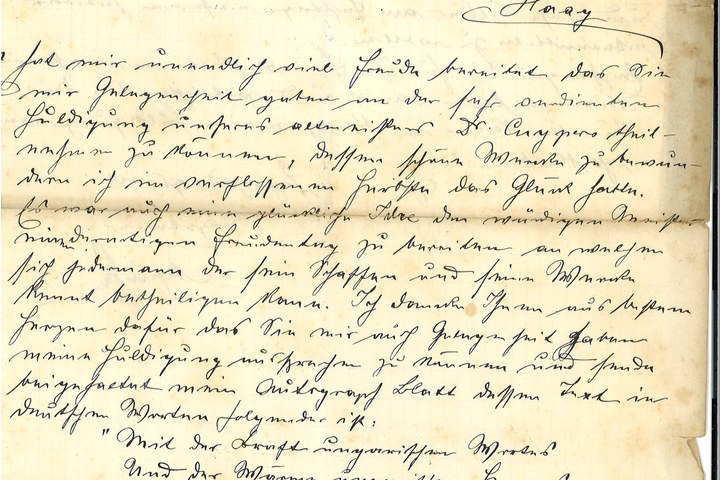 Haag
hat mir unendlich viel Freude bereitet das Sie
mir Gelegenheit gaben an der sehr verdienten
Huldigung unseres altmeisters Dr. Cuypers theil-
nehmen zu können, dessen schöne Wercke zu bewun-
dern ich im verflossenen Herbste das Glück hatte.
Es war auch eine glückliche Idee den würdigen Meister
einen derartigen Freudentag zu bereiten an welchen
sich Jedermann der sein Schaffen und seine Wercke
kennt betheiligen kann. Ich dancke Ihnen aus bestem
Herzen dafür das Sie mir auch Gelegenheit gaben
meine Huldigung aussprechen zu können und sende
beigefaltet mein Autograph Blatt dessen Text in
deutschen Worten folgender ist:
"Mit der Kraft ungarischen Wortes
Und der Wärme